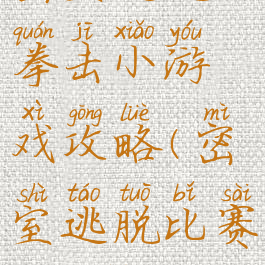 quán jī xiǎo yóu
拳击小游
xì gōng lüè mì
戏攻略(密
shì táo tuō bǐ sài
室逃脱比赛